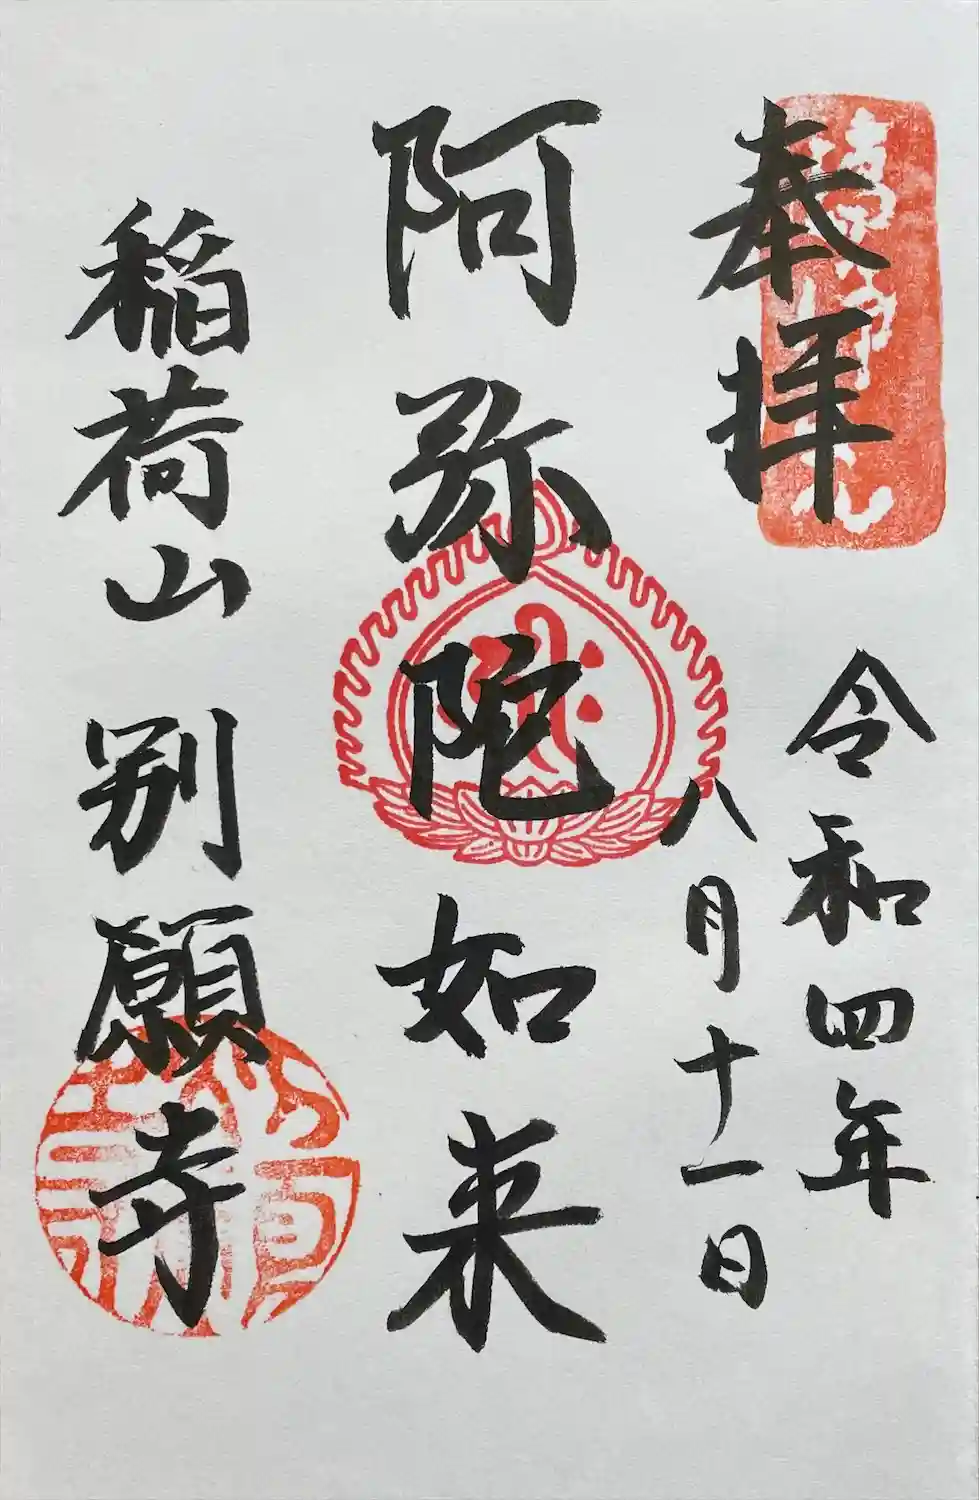 奉拝
令和四年
八月十一日
阿弥陀如来
稲荷山別願寺